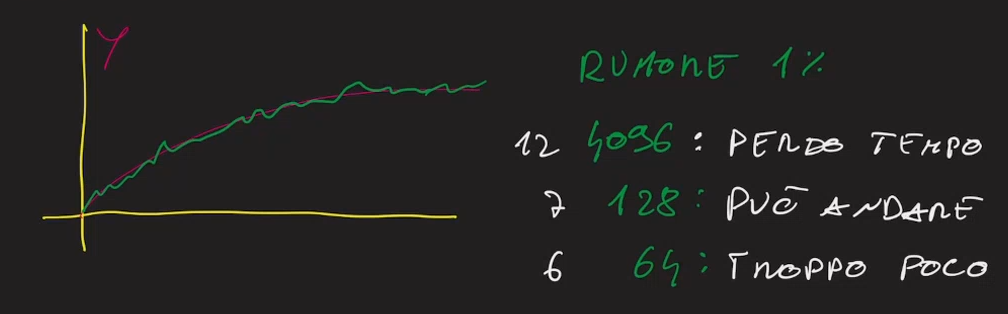 Y
RUMORE 1%
12 4096 : PERDO TEMPO
7 128 : PUÒ ANDARE
6 64 : TROPPO POCO